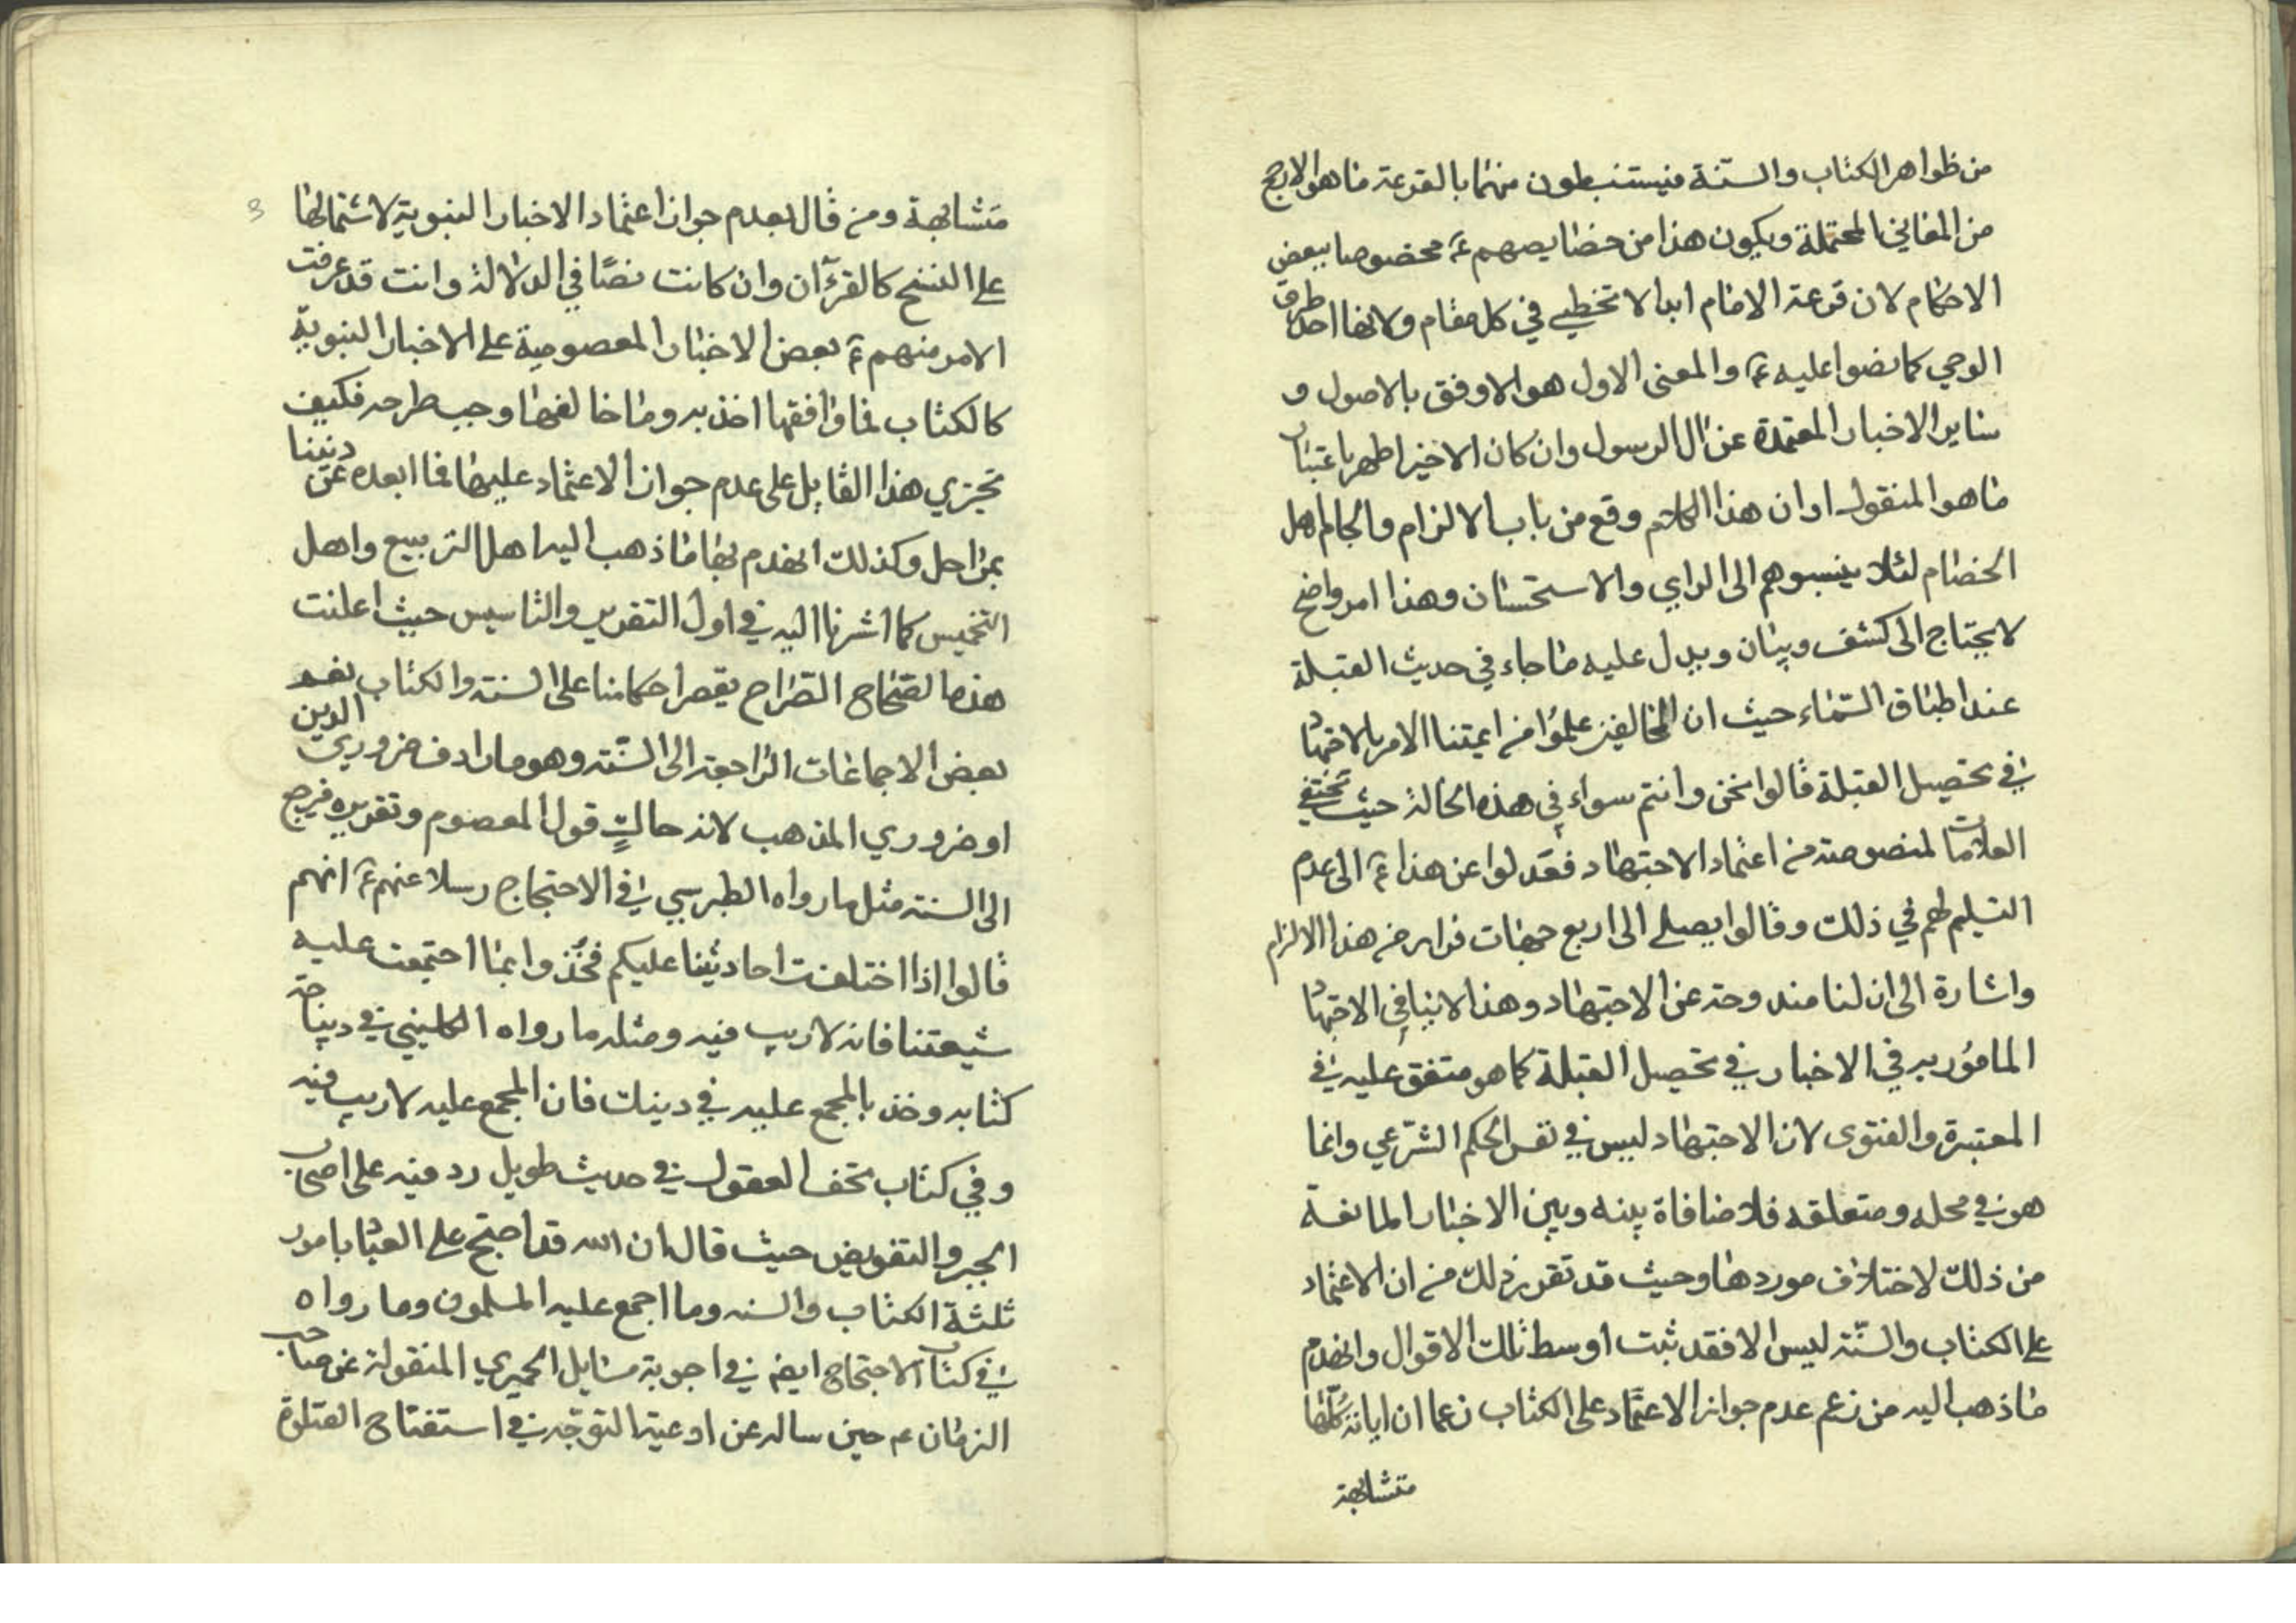 من ظواهر الكتاب والسنة فيستنبطون منهما بالقرعة ما هو الارجح
من المعاني المحتملة ويكون هذا من خصايصهم ع مخصوصا ببعض
الاحكام لان قرعة الامام ابدا لا تخطي في كل مقام ولانها احد طرق
الوحي كما نصوا عليه ع والمعنى الاول هو الاوفق بالاصول و
ساير الاخبار المعتمدة عن ال الرسول وان كان الاخير اظهر باعتبار
ما هو المنقول او ان هذا الكلام وقع من باب الالزام والجام اهل
الخصام لئلا ينسبوهم الى الراي والاستحسان وهذا امر واضح
لا يحتاج الى كشف وبيان ويدل عليه ما جاء في حديث القبلة
عند اطباق السماء حيث ان المخالفين علموا من ايمتنا الامر بالاجتهاد
في تحصيل القبلة قالوا نحن وانتم سواء في هذه الحالة حيث تختفي
العلامات المنصوصة من اعتماد الاجتهاد فعدلوا عن هذا ع الى عدم
التسليم لهم في ذلك وقالوا يصلي الى اربع جهات فرارا من هذا الالزام
واشارة الى ان لنا مندوحة عن الاجتهاد وهذا لا ينافي الاجتهاد
المامور به في الاخبار في تحصيل القبلة كما هو متفق عليه في
المعتبرة والفتوى لان الاجتهاد ليس في نفس الحكم الشرعي وانما
هو في محله ومتعلقه فلا منافاة بينه وبين الاخبار المانعة
من ذلك لاختلاف موردها وحيث قد تقرر ذلك من ان الاعتماد
على الكتاب والسنة ليس الا فقد ثبت اوسط تلك الاقوال وانهدم
ما ذهب اليه من زعم عدم جواز الاعتماد على الكتاب زعما ان اياته كلها
متشابهة
3
متشابهة ومن قال بعدم جواز اعتماد الاخبار النبوية لاشتمالها
على النسخ كالقرآن وان كانت نصا في الدلالة وانت قد عرفت
الامر منهم ع بعرض الاخبار المعصومية على الاخبار النبوية
كالكتاب فما وافقها اخذ به وما خالفها وجب طرحه فكيف
تجزي هذا القايل على عدم جواز الاعتماد عليها فما ابعده عن ديننا
بمراحل وكذلك انهدم بها ما ذهب اليه اهل التربيع واهل
التخميس كما اشرنا اليه في اول التقرير والتاسيس حيث اعلنت
هذه الصحاح الصراح بقصر احكامنا على السنة والكتاب نعم
بعض الاجماعات الراجعة الى السنة وهو ما رادف ضروري الدين
او ضروري المذهب لانه حاك قول المعصوم وتقريره فرجع
الى السنة مثل ما رواه الطبرسي في الاحتجاج مرسلا عنهم ع انهم
قالوا اذا اختلفت احاديثنا عليكم فخذوا بما اجتمعت عليه
شيعتنا فانه لا ريب فيه ومثله ما رواه الكليني في ديباجة
كتابه وخذ بالمجمع عليه في دينك فان المجمع عليه لا ريب فيه
وفي كتاب تحف العقول في حديث طويل رد فيه على اصحاب
الجبر والتفويض حيث قال ان الله قد احتج على العباد بامور
ثلثة الكتاب والسنة وما اجمع عليه المسلمون وما رواه
في كتاب الاحتجاج ايضا في اجوبة مسايل الحميري المنقولة عن صاحب
الزمان عم حين ساله عن ادعية التوجه في استفتاح الصلوة